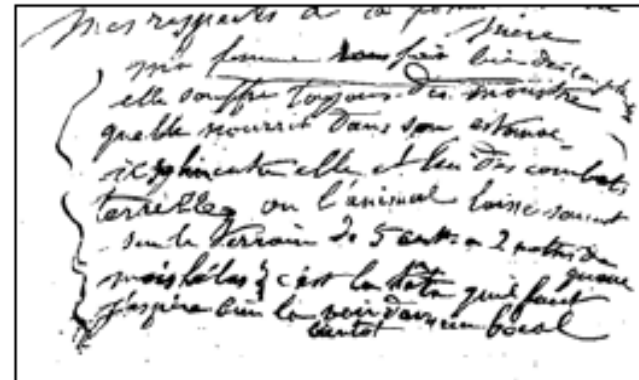 Mes respects à la
mère
ma femme vous fait bien des compliments
elle souffre toujours des monstre
quelle nourrit dans son estomac
il y a entre elle et lui des combats
terribles ou l'animal laisse souvent
sur le terrain de 5 a 2 metres de
queue
mais hélas c'est la tête qu'il faut
j'espère bien la voir dans un bocal
bientot